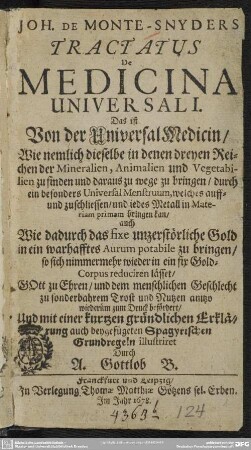 JOH. DE MONTE-SNYDERS
TRACTATUS
De
MEDICINA
UNIVERSALI.
Das ist
Von der Universal Medicin/
Wie nemlich dieselbe in denen dreyen Rei-
chen der Mineralien, Animalien und Vegetabi-
lien zu finden und daraus zu wege zu bringen/ durch
ein besonders Universal Menstruum, welches auff-
und zuschliessen/ und jedes Metall in Mate-
riam primam bringen kan/
auch
Wie dadurch das fixe unzerstörliche Gold
in ein warhafftes Aurum potabile zu bringen/
so sich nimmermehr wieder in ein fix Gold-
Corpus reduciren lässet/
GOtt zu Ehren/ und dem menschlichen Geschlecht
zu sonderbahrem Trost und Nutzen anitzo
wiederum zum Druck befördert/
Und mit einer kurtzen gründlichen Erklä-
rung auch beygefügeten Spagyrischen
Grundregeln illustriret
Durch
A. Gottlob B.
Franckfurt und Leipzig/
In Verlegung Thomæ Matthiæ Götzens sel. Erben.
Im Jahr 1678.
4369
124